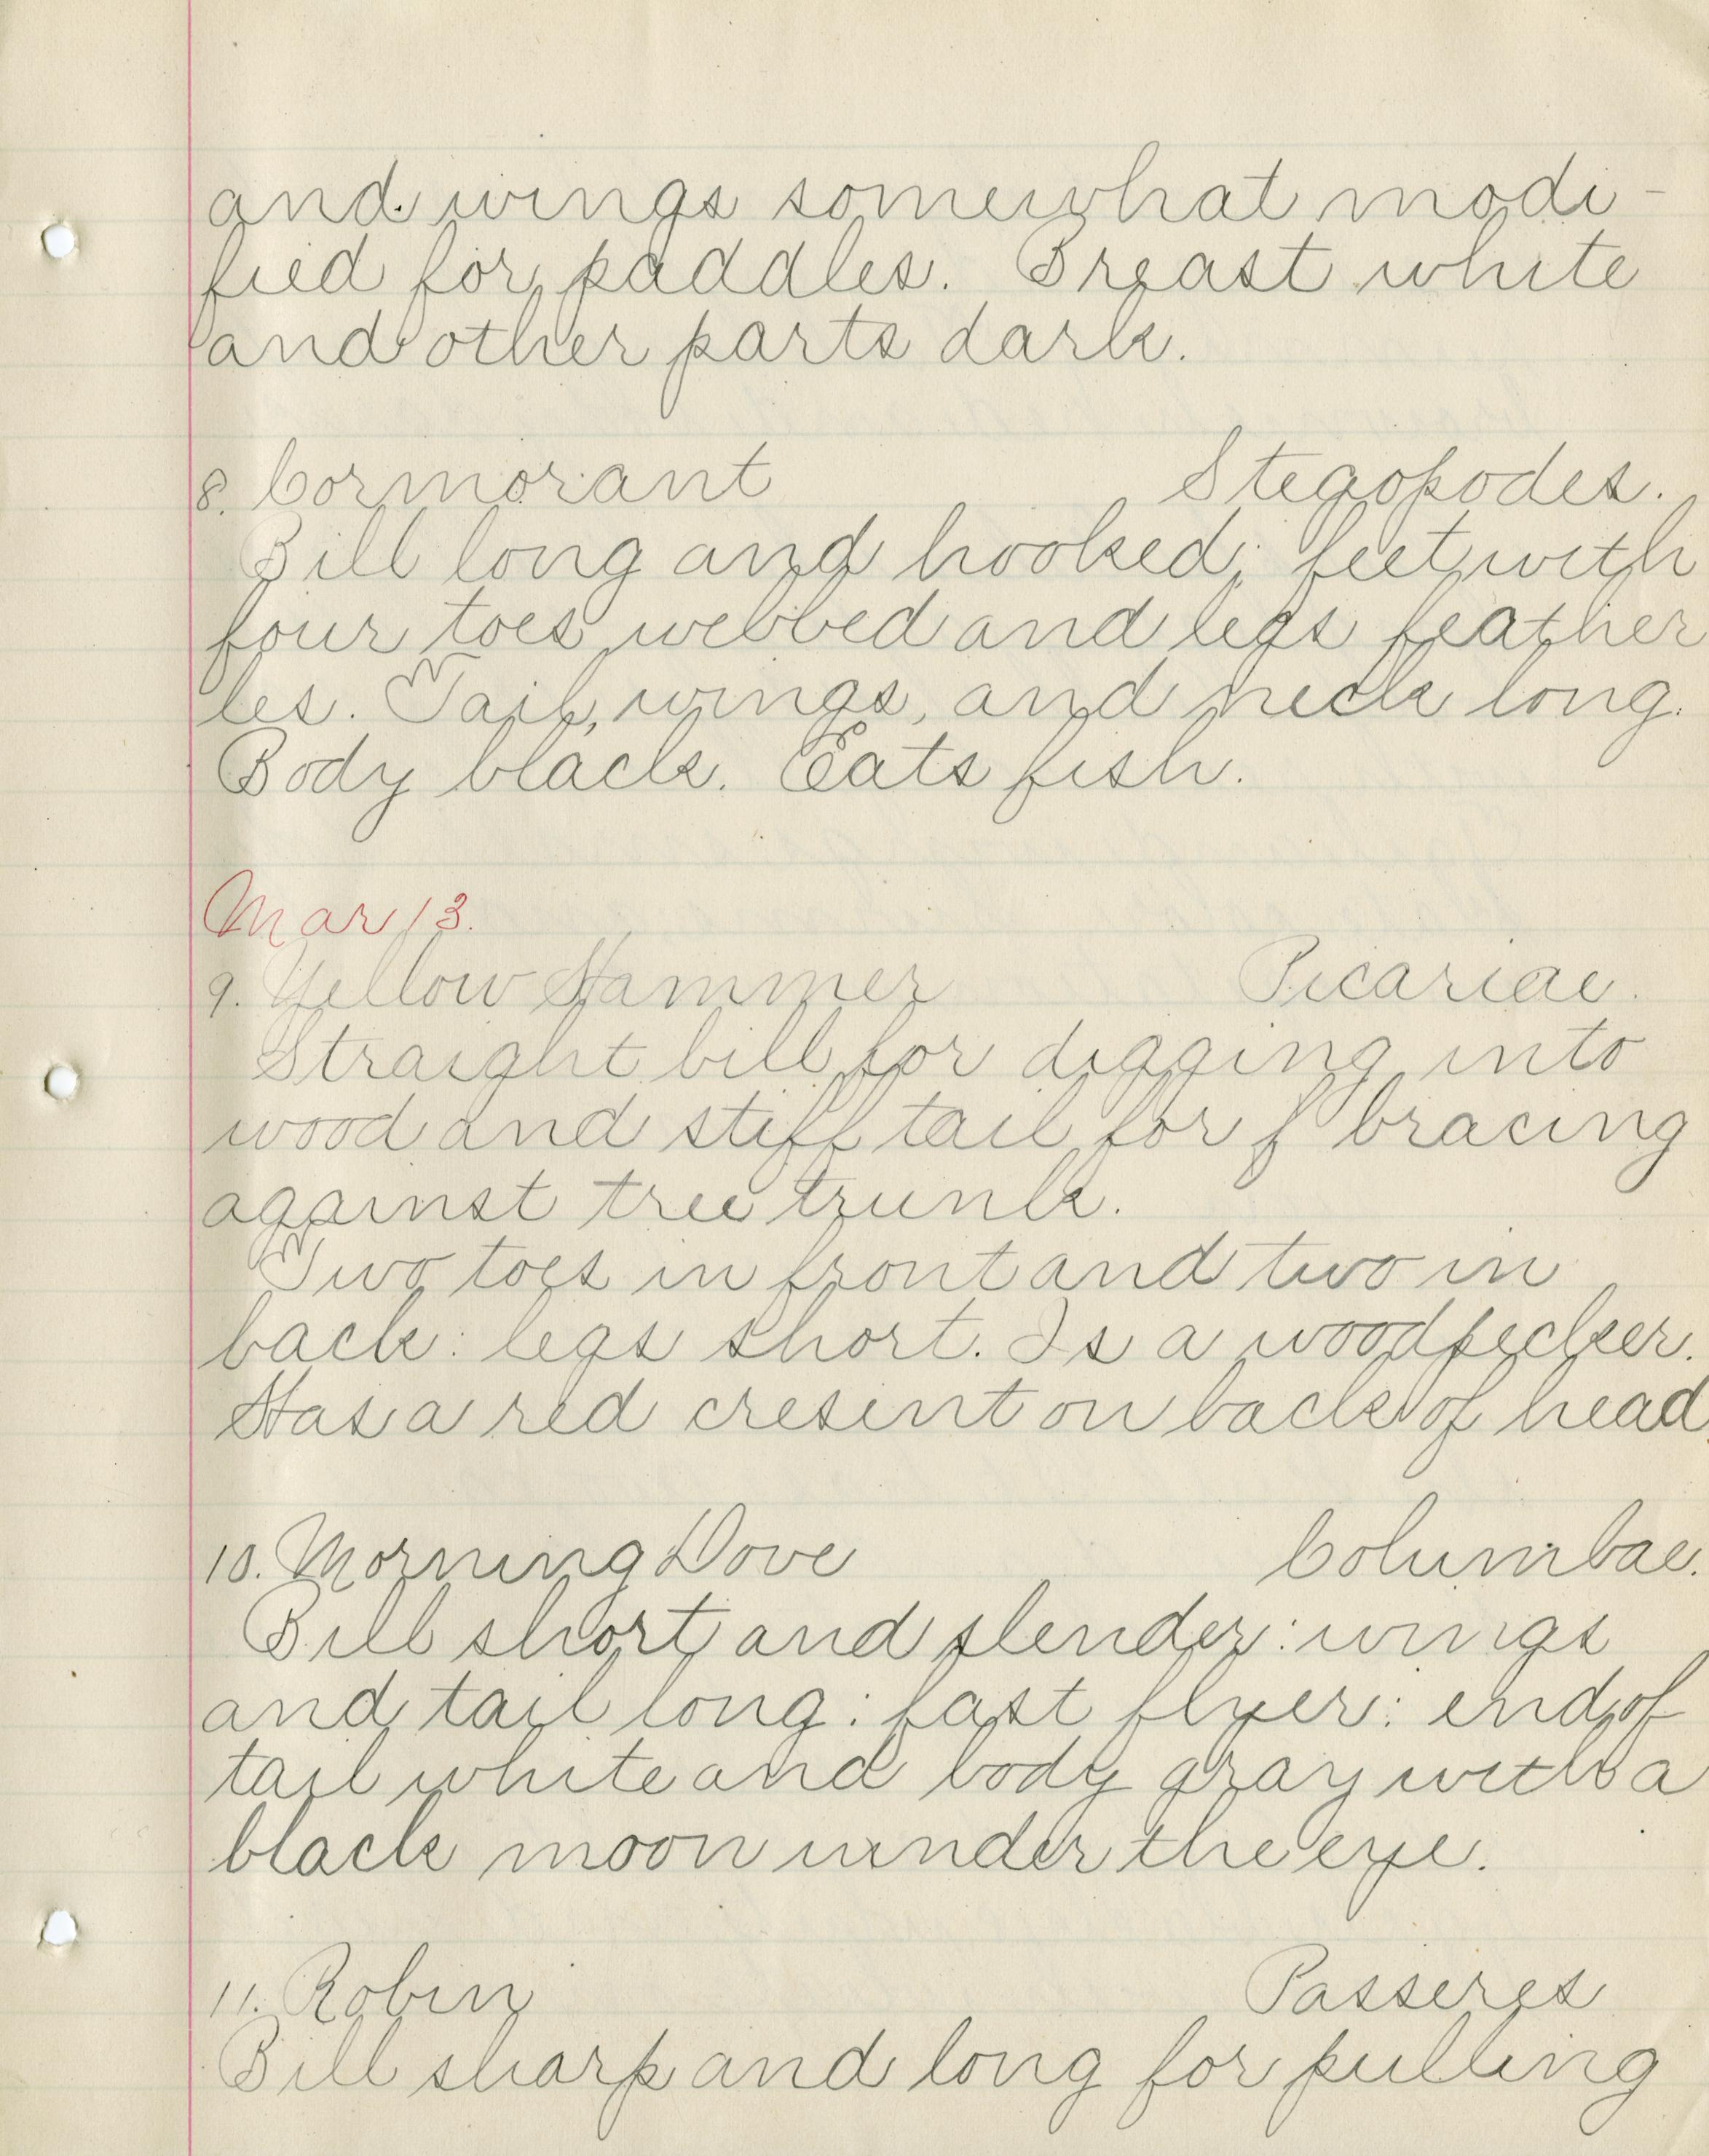 and wings somewhat modi-
fied for paddles. Breast white
and other parts dark.
8. Cormorant Stegopodes.
Bill long and hooked; feet with
four toes webbed and legs feather
les. Tail, wings, and neck long.
Body black. Eats fish.
Mar 13.
9. Yellow Hammer Picariae.
Straight bill for digging into
wood and stiff tail for f bracing
against tree trunk.
Two toes in front and two in
back: legs short. Is a woodpecker.
Has a red cresent on back of head.
10. Morning Dove Columbae.
Bill short and slender: wings
and tail long: fast flyer: end of
tail white and body gray with a
black moon under the eye.
11. Robin Passeres
Bill sharp and long for pulling